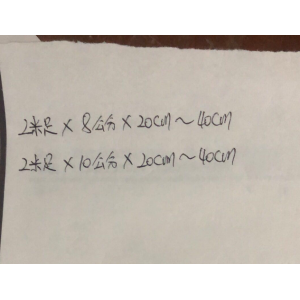 2米足×8公分×20cm~40cm
2米足×10公分×20cm~40cm